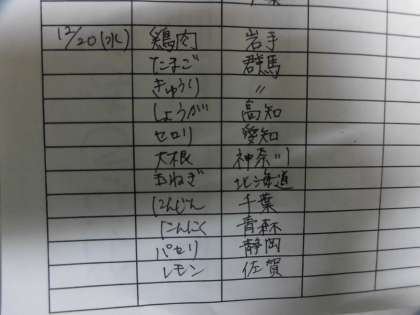 12/20(水) 鶏肉 岩手
たまご 群馬
きゅうり 〃
しょうが 高知
セロリ 愛知
大根 神奈川
玉ねぎ 北海道
にんじん 千葉
にんにく 青森
パセリ 静岡
レモン 佐賀